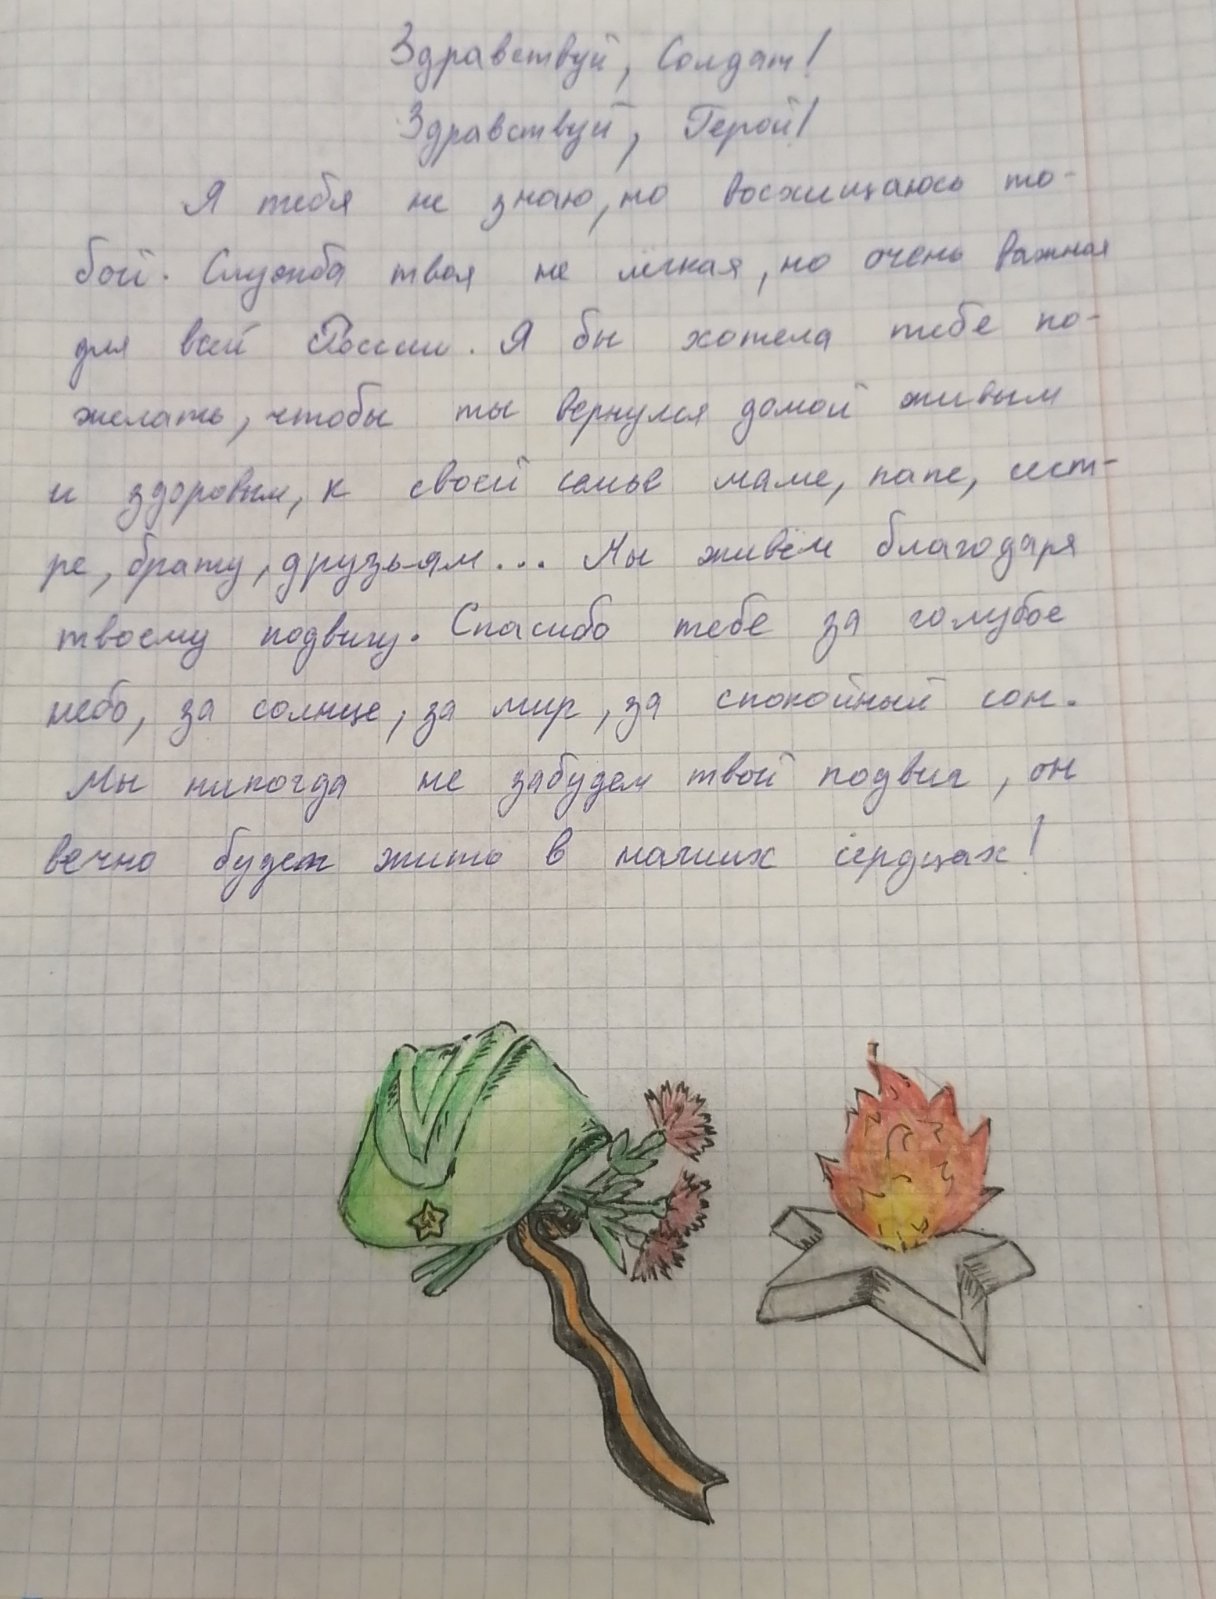 Здравствуй, Солдат!
Здравствуй, Герой!
Я тебя не знаю, но восхищаюсь то-
бой. Служба твоя не лёгкая, но очень важная
для всей России. Я бы хотела тебе по-
желать, чтобы ты вернулся домой живым
и здоровым, к своей семье маме, папе, сест-
ре, брату, друзьям... Мы живём благодаря
твоему подвигу. Спасибо тебе за голубое
небо, за солнце, за мир, за спокойный сон.
Мы никогда не забудем твой подвиг, он
вечно будет жить в наших сердцах!